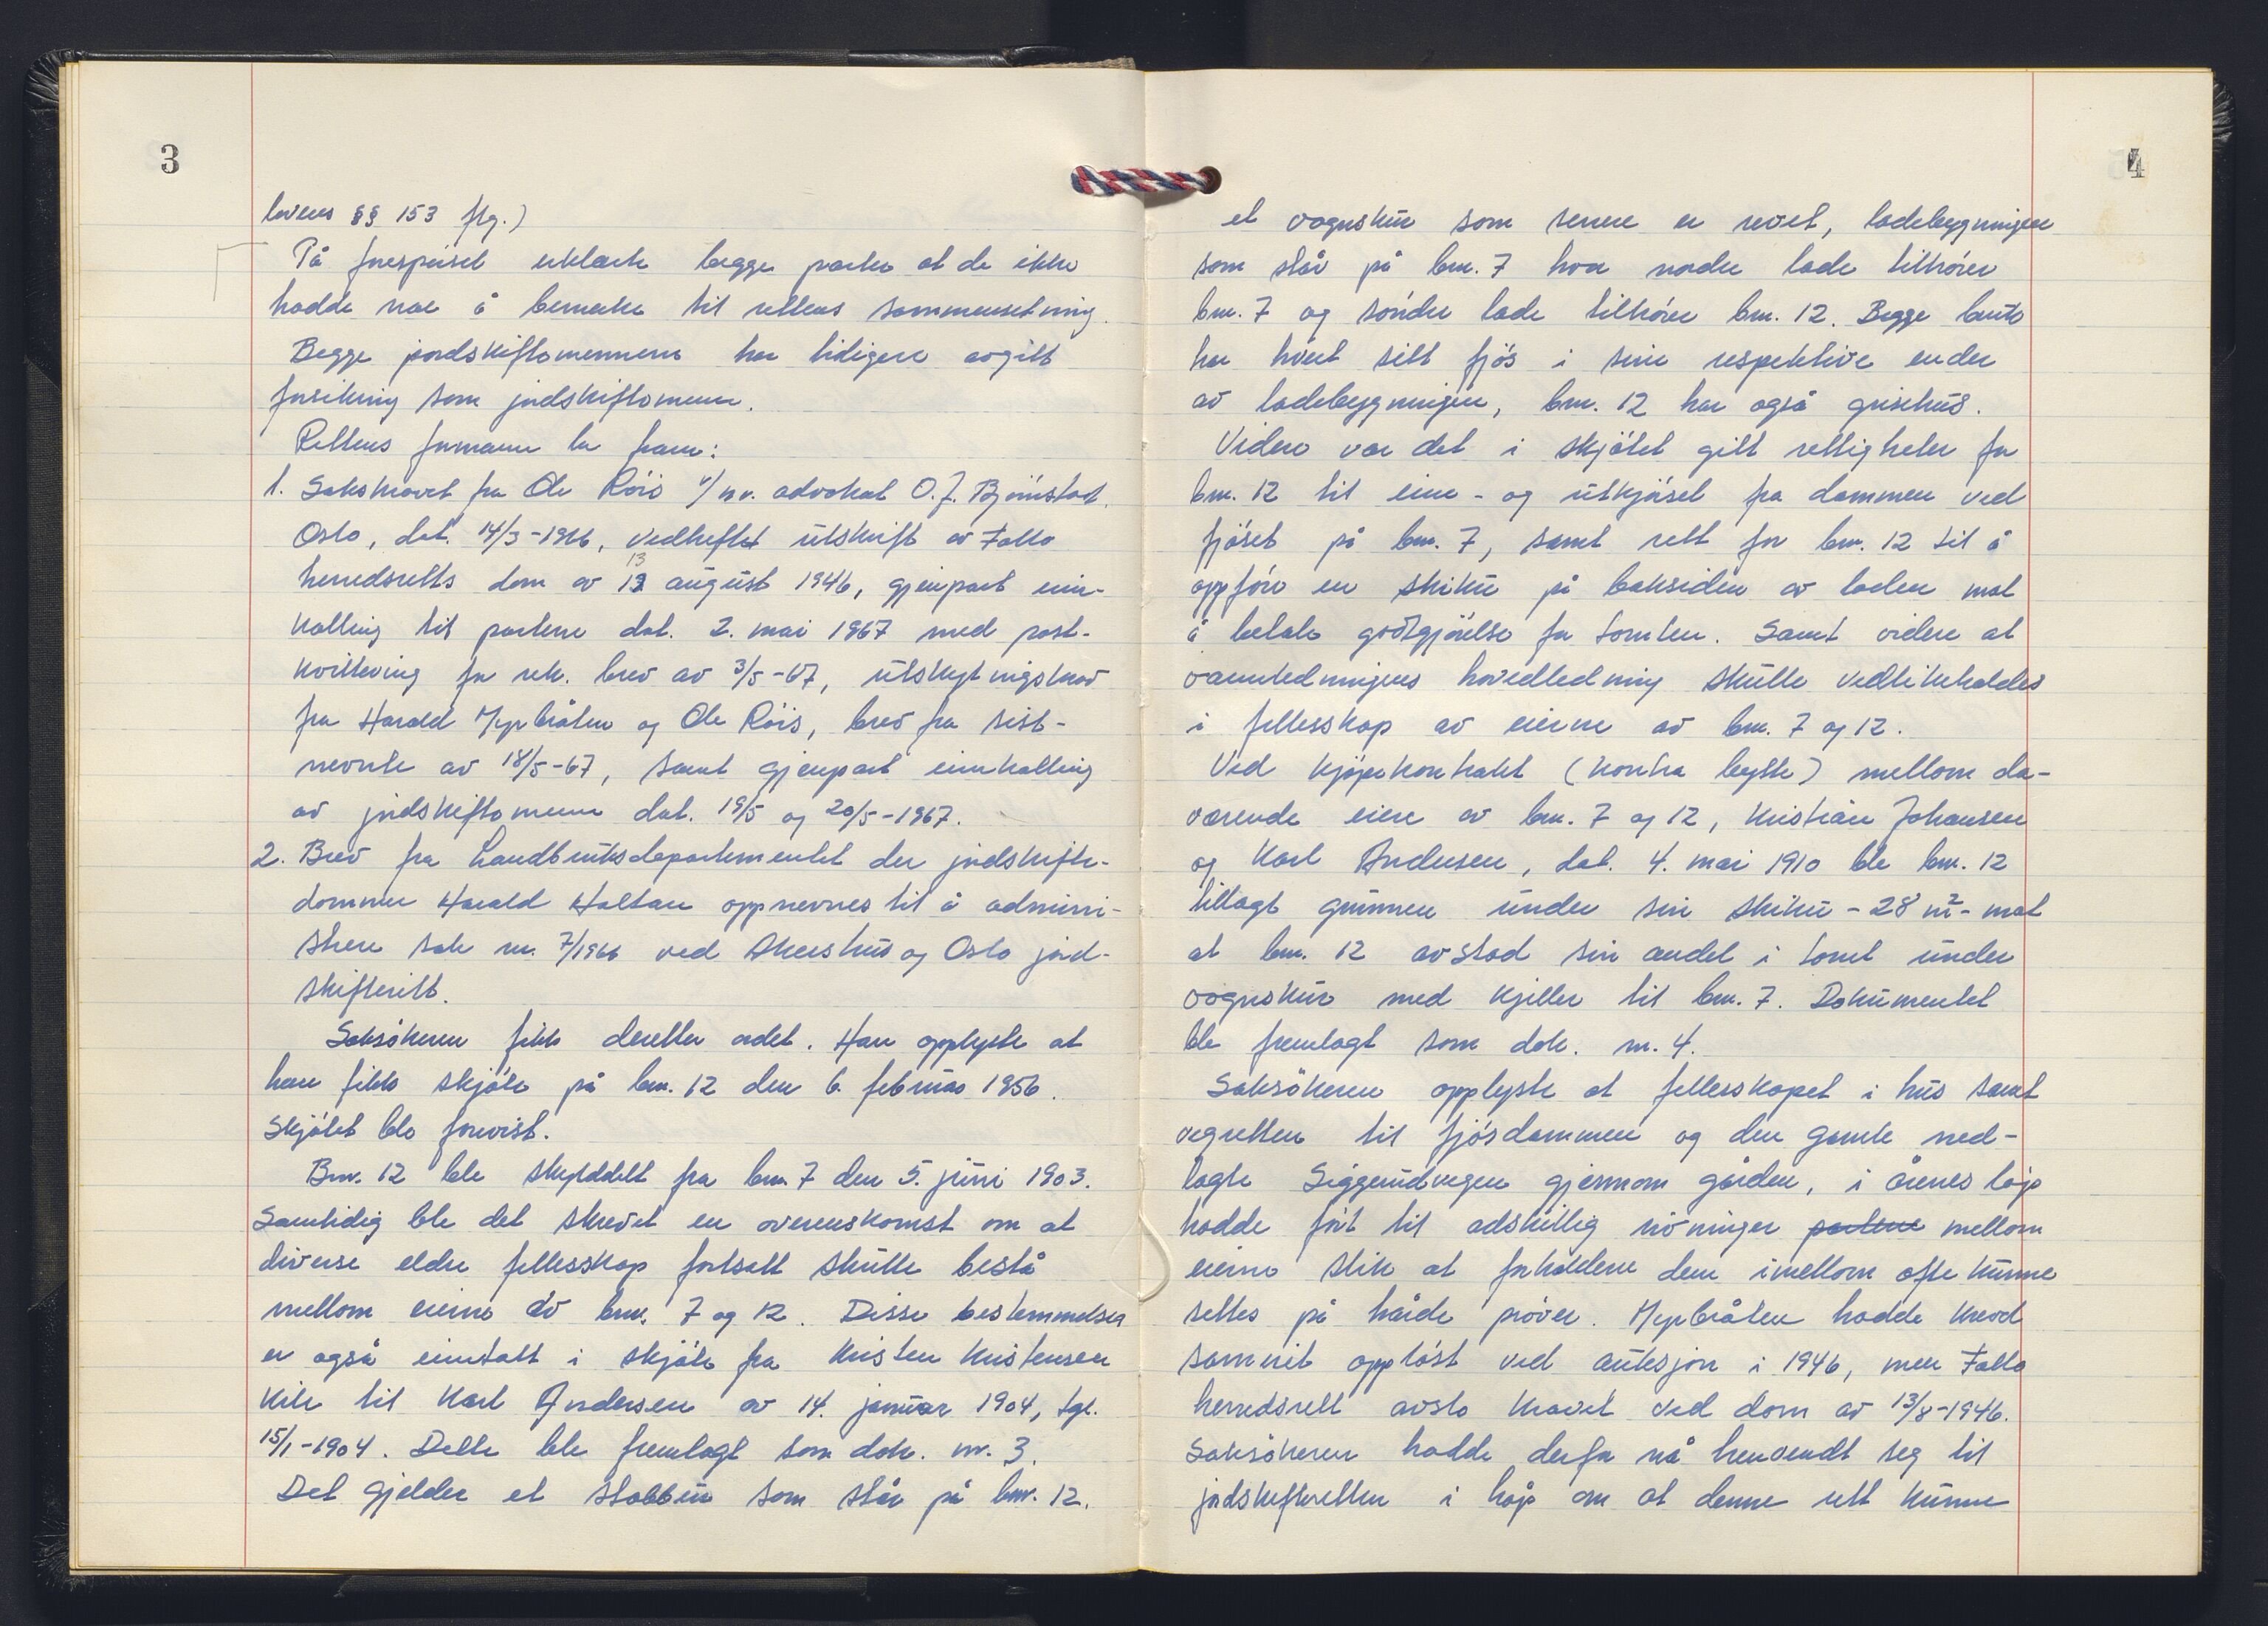 3
lovens §§ 153 flg.)
På forespørsel erklærte begge parter at de ikke
hadde noe å bemerke til rettens sammensetning.
Begge jordskiftemennene har tidigere avgitt
forsikring som jordskiftemenn.
Rettens formann la fram:
1. Sakskravet fra Ole Röis v/ h.r. advokat O. J. Bjørnstad.
Oslo, dat. 14/3-1966, vedheftet utskrift av Follo
herredsretts dom av 13 august 1946, gjenpart inn-
kalling til partene dat. 2. mai 1967 med post-
kvittering for rek. brev av 3/5-67, utskytningskrav
fra Harald Myrbråten og Ole Röis, brev fra sist-
nevnte av 18/5-67, samt gjenpart innkalling
av jordskiftemenn dat. 19/5 og 20/5-1967.
2. Brev fra Landbruksdepartementet der jordskifte-
dommer Harald Haltan oppnevnes til å admini-
strere sak nr. 7/1966 ved Akershus og Oslo jord-
skifterett.
Saksökeren fikk deretter ordet. Han opplyste at
han fikk skjöte på bnr. 12 den 6. februar 1956.
Skjötet ble forevist.
Bnr. 12 ble skylddelt fra bnr. 7 den 5. juni 1903.
Samtidig ble det skrevet en overenskomst om at
diverse eldre fellesskap fortsatt skulle bestå
mellom eierne av bnr. 7 og 12. Disse bestemmelser
er også inntatt i skjöte fra Kristen Kristensen
Kile til Karl Andersen av 14. januar 1904, tgl.
15/1-1904. Dette ble fremlagt som dok. nr. 3.
Det gjelder et stabbur som står på bnr. 12.
4
et vognskur som senere er revet, ladebygningen
som står på bnr. 7 hvor nordre lade tilhörer
bnr. 7 og söndre lade tilhörer bnr. 12. Begge bruk
har hvert sitt fjös i sine respektive ender
av ladebygningen, bnr. 12 har også grisehus.
Videre var det i skjötet gitt rettigheter for
bnr. 12 til inn- og utkjörsel fra dammen ved
fjöset på bnr. 7, samt rett for bnr. 12 til å
oppföre en skikur på baksiden av laden mot
å betale godtgjörelse for tomten. Samt videre at
vannledningens hovedledning skulle vedlikeholdes
i fellesskap av eierne av bnr. 7 og 12.
Ved kjöpekontrakt (kontra bytte) mellom da-
værende eiere av bnr. 7 og 12, Kristian Johansen
og Karl Andersen, dat. 4. mai 1910 ble bnr. 12
tillagt grunnen under sin skikur - 28 m² - mot
at bnr. 12 avstod sin andel i tomt under
vognskur med kjeller til bnr. 7. Dokumentet
ble fremlagt som dok. nr. 4.
Saksökeren opplyste at fellesskapet i hus samt
vegretten til fjösdammen og den gamle ned-
lagte Siggerudvegen gjennom gården, i årenes löp
hadde fört til adskillig rivninger partene mellom
eierne slik at forholdene dem imellom ofte kunne
settes på hårde pröver. Myrbråten hadde krevd
sameiet opplöst ved auksjon i 1946, men Follo
herredsrett avslo kravet ved dom av 13/8-1946.
Saksökeren hadde derfor nå henvendt seg til
jordskifteretten i håp om at denne rett kunne